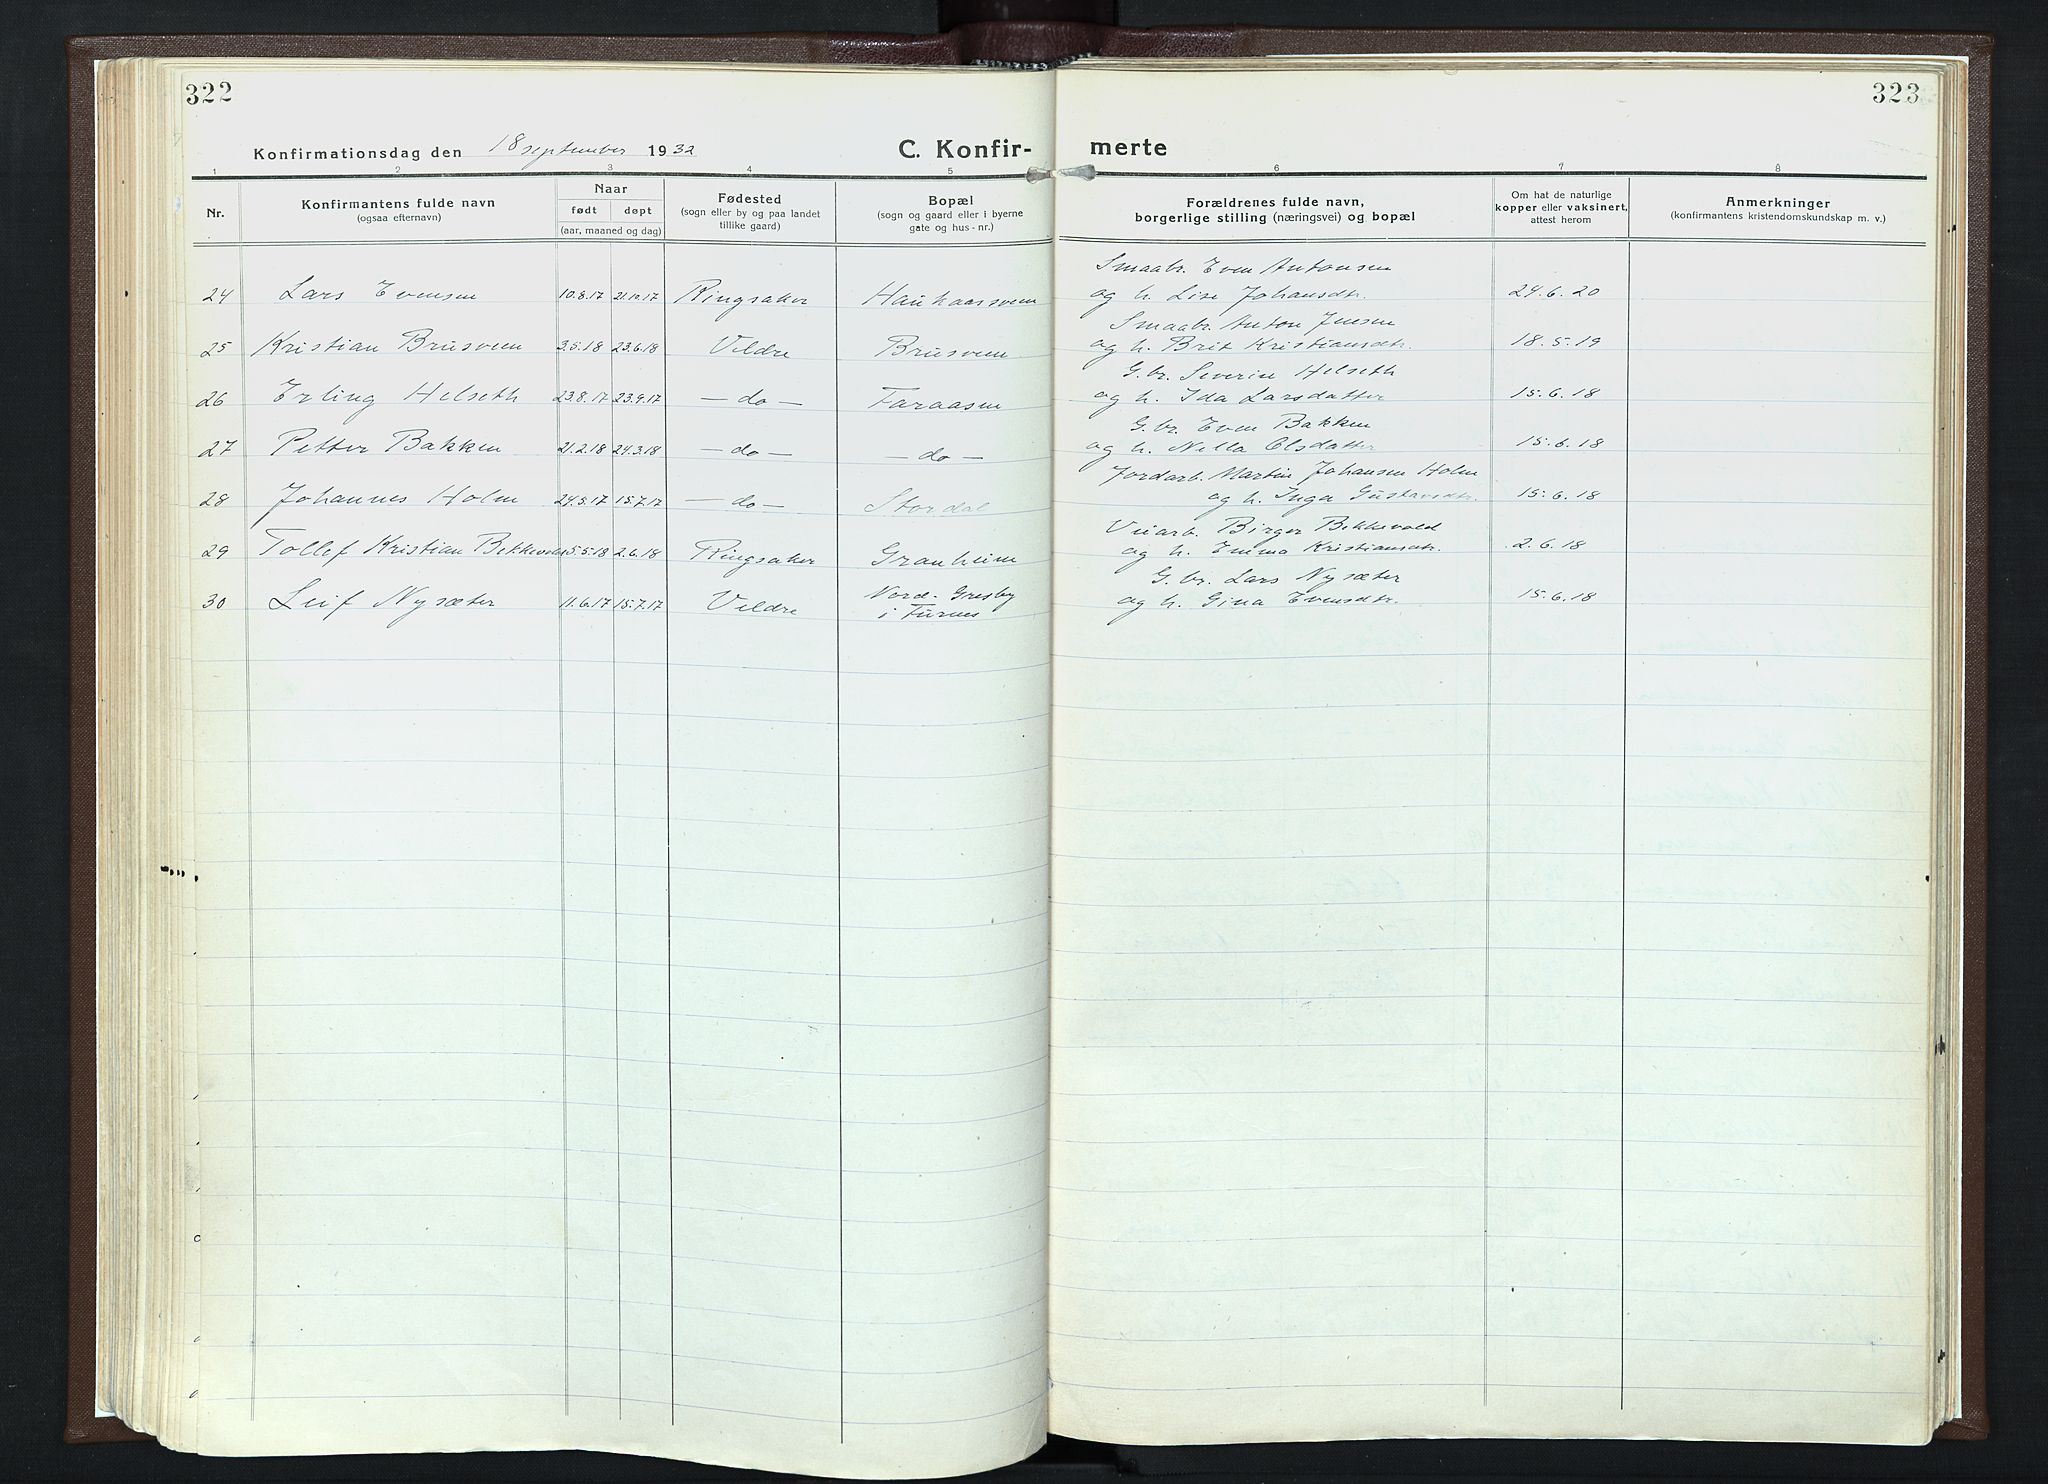 322
323
Konfirmationsdag den 18 september 1932
C. Konfir-
merte
1 2 3 4 5 6 7 8
Nr.
Konfirmantens fulde navn
(ogsaa efternavn)
Naar
født døpt
(aar, maaned og dag)
Fødested
(sogn eller by og paa landet
tillike gaard)
Bopæl
(sogn og gaard eller i byerne
gate og hus-nr.)
Forældrenes fulde navn,
borgerlige stilling (næringsvei) og bopæl
Om hat de naturlige
kopper eller vaksinert,
attest herom
Anmerkninger
(konfirmantens kristendomskundskap m. v.)
Smaabr. Even Antonsen
24 Lars Evensen 10.8.17 21.10.17 Ringsaker Haukaasveen og h. Lise Johansdtr. 24.6.20
Smaabr. Anton Jensen
25 Kristian Brusveen 3.5.18 23.6.18 Veldre Brusveen og h. Brit Kristiansdtr. 18.5.19
G.br. Severin Helseth
26 Erling Helseth 23.8.17 23.9.17 — do — Faraasen og h. Ida Larsdatter 15.6.18
G.br. Even Bakken
27 Petter Bakken 21.2.18 24.3.18 — do — — do — og h. Nella Olsdatter 15.6.18
Jordarb. Martin Johansen Holm
28 Johannes Holm 24.5.17 15.7.17 — do — Stordal og h. Inga Gustavsdtr. 15.6.18
Veiarb. Birger Bekkevold
29 Tollef Kristian Bekkevold 5.5.18 2.6.18 Ringsaker Granheim og h. Emma Kristiansdtr. 2.6.18
G.br. Lars Nysæter
30 Leif Nysæter 11.6.17 15.7.17 Veldre Nord-Gresby og h. Gina Evensdtr. 15.6.18
i Furnes